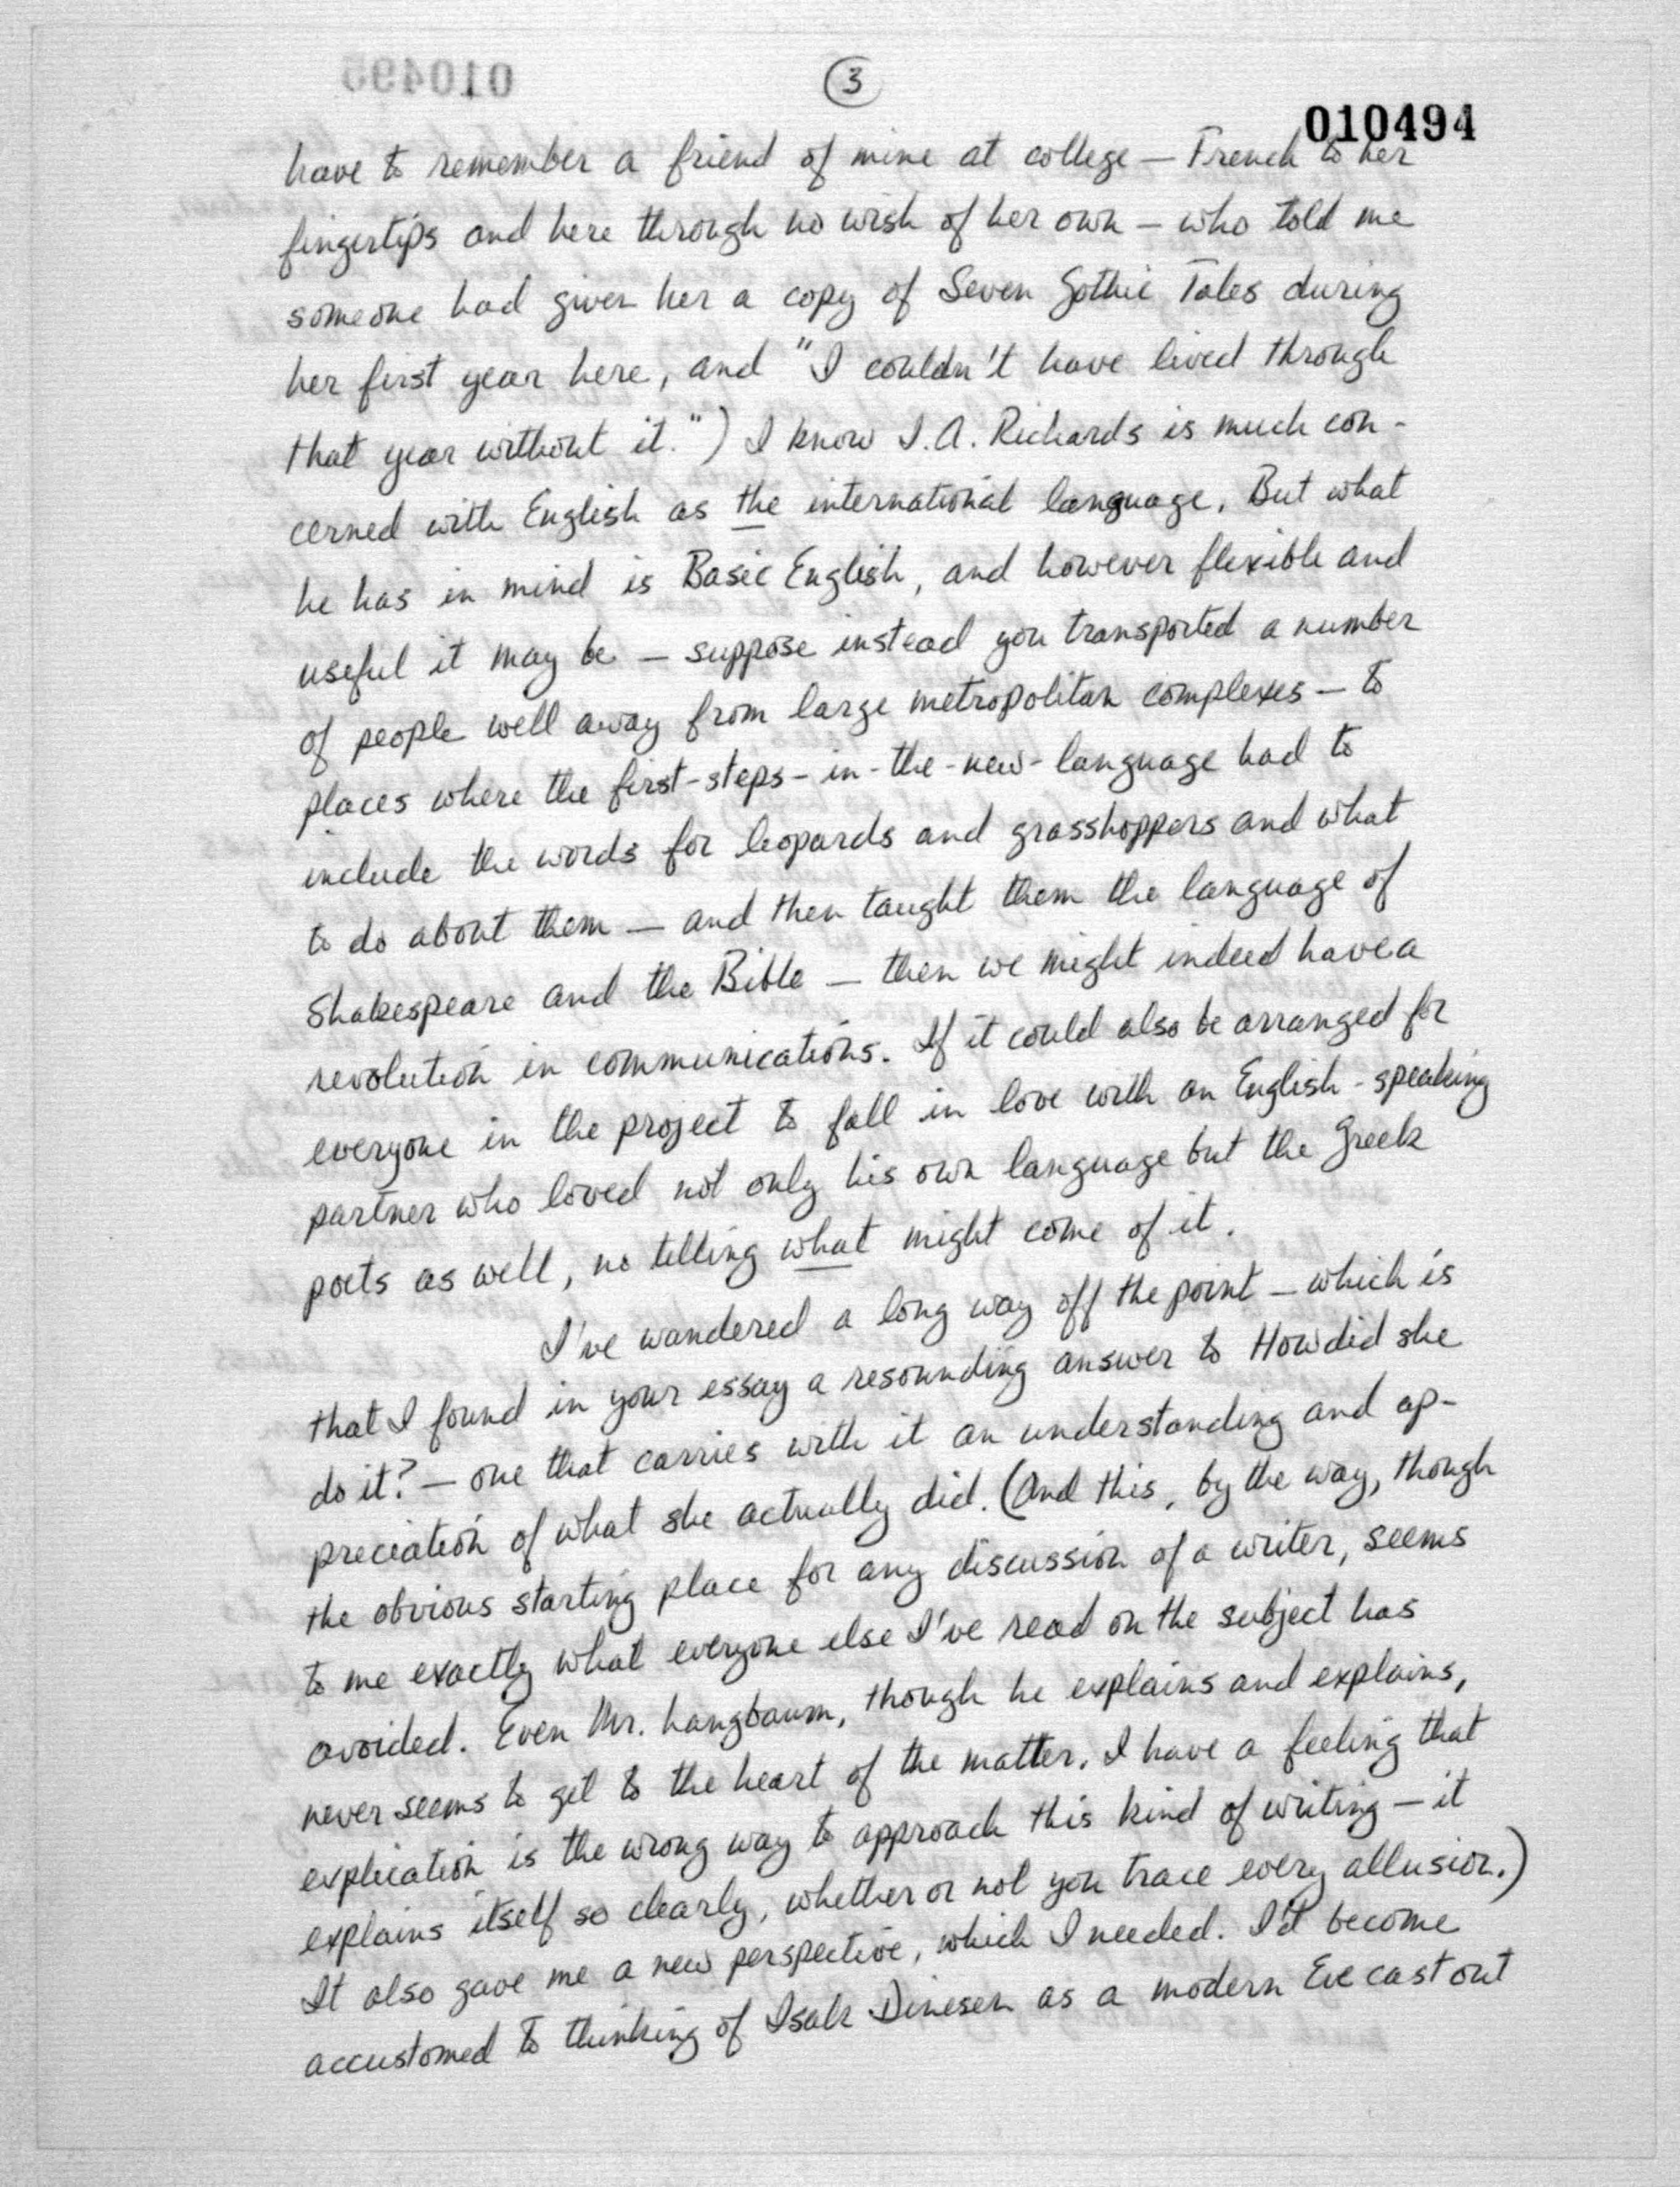 010495
3
010494
have to remember a friend of mine at college — French to her
fingertips and here through no wish of her own — who told me
someone had given her a copy of Seven Gothic Tales during
her first year here, and "I couldn't have lived through
that year without it.") I know I.A. Richards is much con-
cerned with English as the international language. But what
he has in mind is Basic English, and however flexible and
useful it may be — suppose instead you transported a number
of people well away from large metropolitan complexes — to
places where the first-steps-in-the-new-language had to
include the words for leopards and grasshoppers and what
to do about them — and then taught them the language of
Shakespeare and the Bible — then we might indeed have a
revolution in communications. If it could also be arranged for
everyone in the project to fall in love with an English-speaking
partner who loved not only his own language but the Greek
poets as well, no telling what might come of it.
I've wandered a long way off the point — which is
that I found in your essay a resounding answer to How did she
do it? — one that carries with it an understanding and ap-
preciation of what she actually did. (And this, by the way, though
the obvious starting place for any discussion of a writer, seems
to me exactly what everyone else I've read on the subject has
avoided. Even Mr. Langbaum, though he explains and explains,
never seems to get to the heart of the matter. I have a feeling that
explication is the wrong way to approach this kind of writing — it
explains itself so clearly, whether or not you trace every allusion.)
It also gave me a new perspective, which I needed. I'd become
accustomed to thinking of Isak Dinesen as a modern Eve cast out